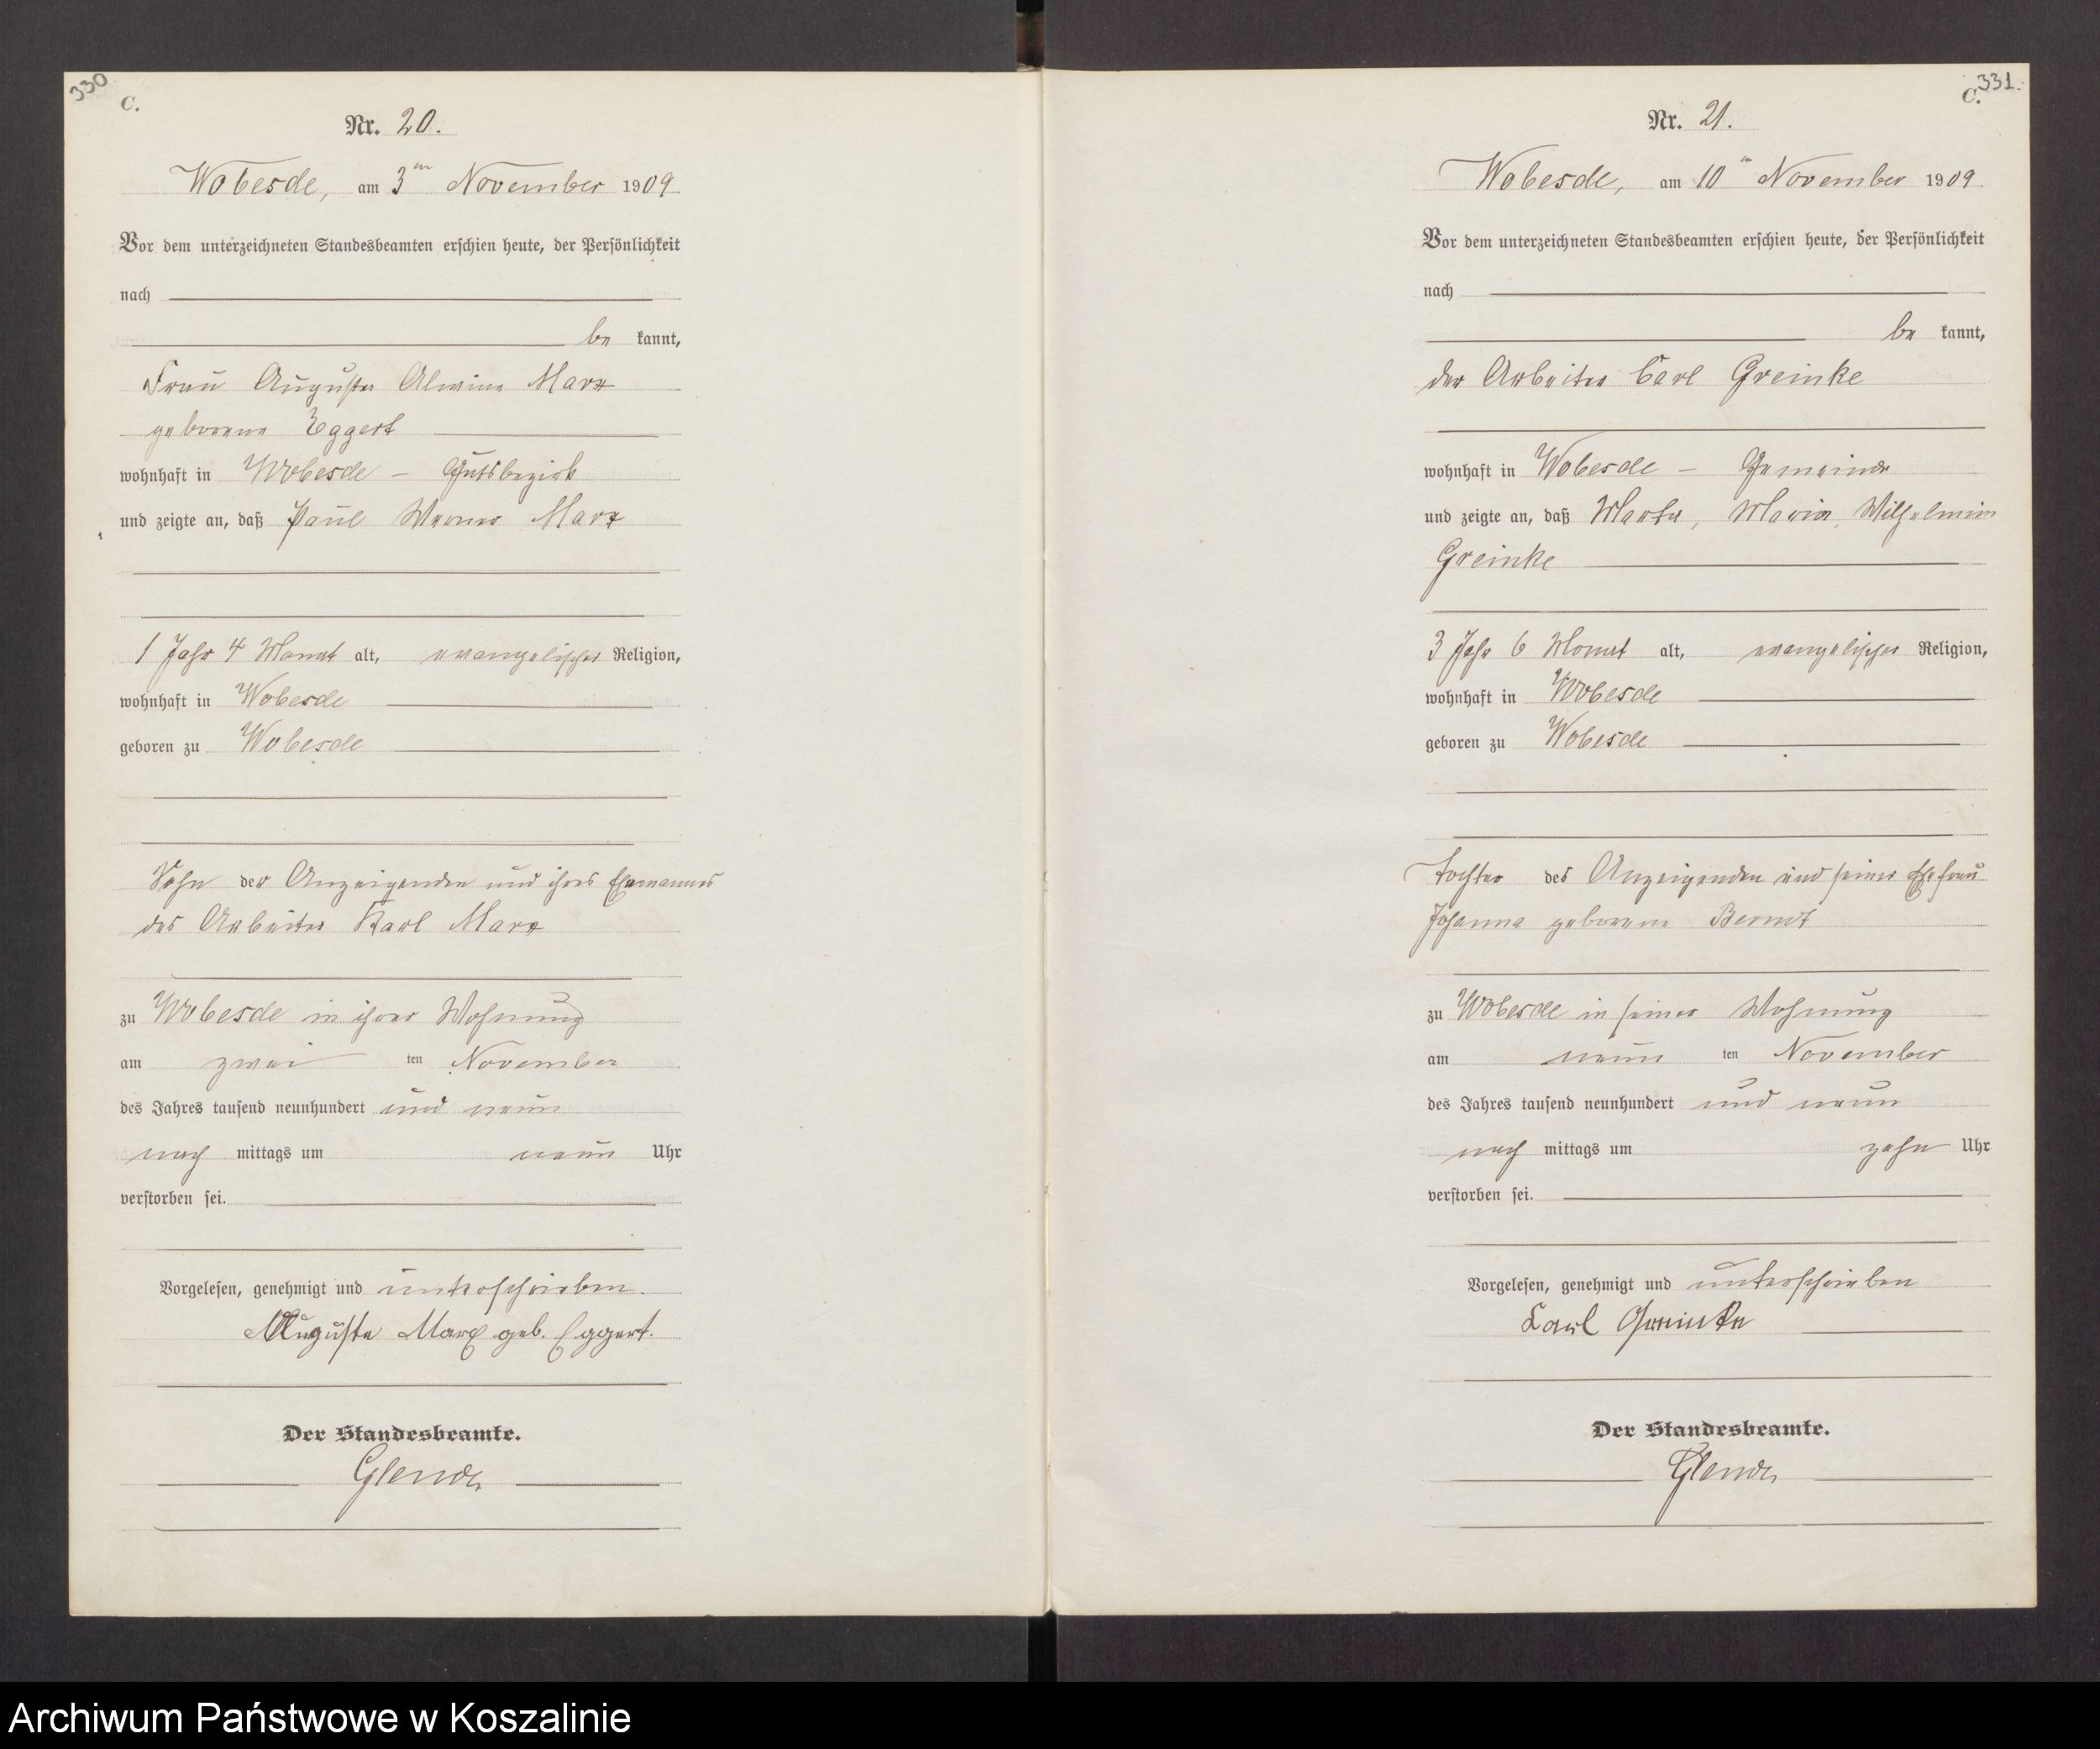 330
C.
Nr. 20.
Wobesde, am 3ten November 1909
Vor dem unterzeichneten Standesbeamten erschien heute, der Persönlichkeit
nach
be kannt,
Frau Auguste Alwine Marx
geborene Eggert
wohnhaft in Wobesde – Gutsbezirk
und zeigte an, daß Paul Werner Marx
1 Jahr 4 Monat alt, evangelischer Religion,
wohnhaft in Wobesde
geboren zu Wobesde
Sohn der Anzeigenden und ihres Ehemannes
des Arbeiter Karl Marx
zu Wobesde in ihrer Wohnung
am zwei ten November
des Jahres tausend neunhundert und neun
nach mittags um neun Uhr
verstorben sei.
Vorgelesen, genehmigt und unterschrieben.
Auguste Marx geb. Eggert.
Der Standesbeamte.
331.
C.
Nr. 21.
Wobesde, am 10ten November 1909
Vor dem unterzeichneten Standesbeamten erschien heute, der Persönlichkeit
nach
be kannt,
der Arbeiter Carl Greinke
wohnhaft in Wobesde – Gemeinde
und zeigte an, daß Martha, Maria, Wilhelmine
Greinke
3 Jahr 6 Monat alt, evangelischer Religion,
wohnhaft in Wobesde
geboren zu Wobesde
Tochter des Anzeigenden und seiner Ehefrau
Johanna geborene Berndt
zu Wobesde in seiner Wohnung
am neun ten November
des Jahres tausend neunhundert und neun
nach mittags um zehn Uhr
verstorben sei.
Vorgelesen, genehmigt und unterschrieben
Carl Greinke
Der Standesbeamte.
Archiwum Państwowe w Koszalinie